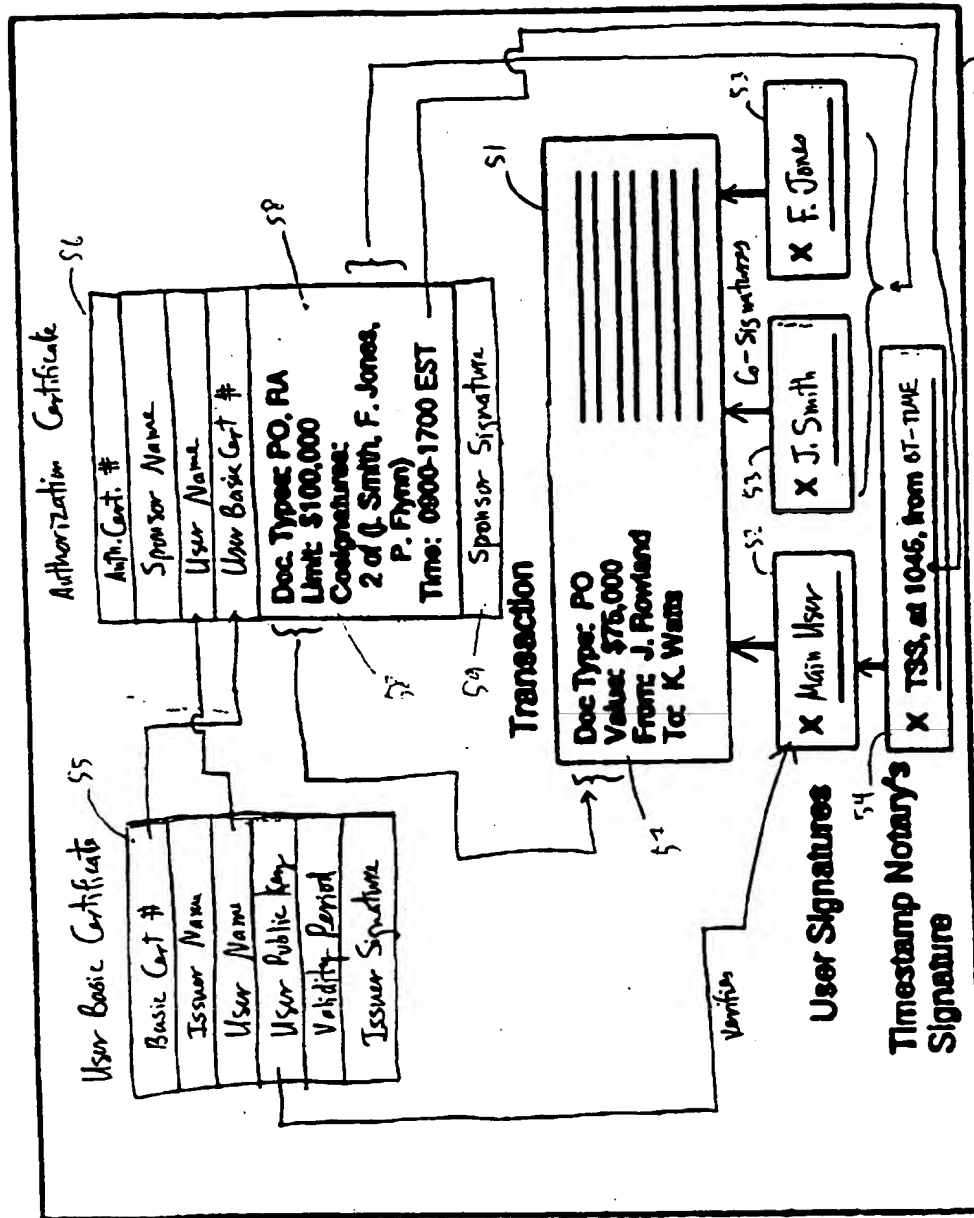 User Basic Certificate
55
Basic Cert #
Issuer Name
User Name
User Public Key
Validity Period
Issuer Signature
Authorization Certificate
56
Auth. Cert. #
Sponsor Name
User Name
User Basic Cert #
Doc. Types: PO, RA
Limit: $100,000
Cosignatures:
2 of (J. Smith, F. Jones,
P. Flynn)
Time: 0900-1700 EST
58
59
Sponsor Signature
Transaction
51
Doc Type: PO
Value: $75,000
From: J. Rowland
To: K. Watts
Verifies
52
X Main User
Co-Signatures
53
X J. Smith
53
X F. Jones
User Signatures
54
Timestamp Notary's
Signature
X TSS, at 1045, from